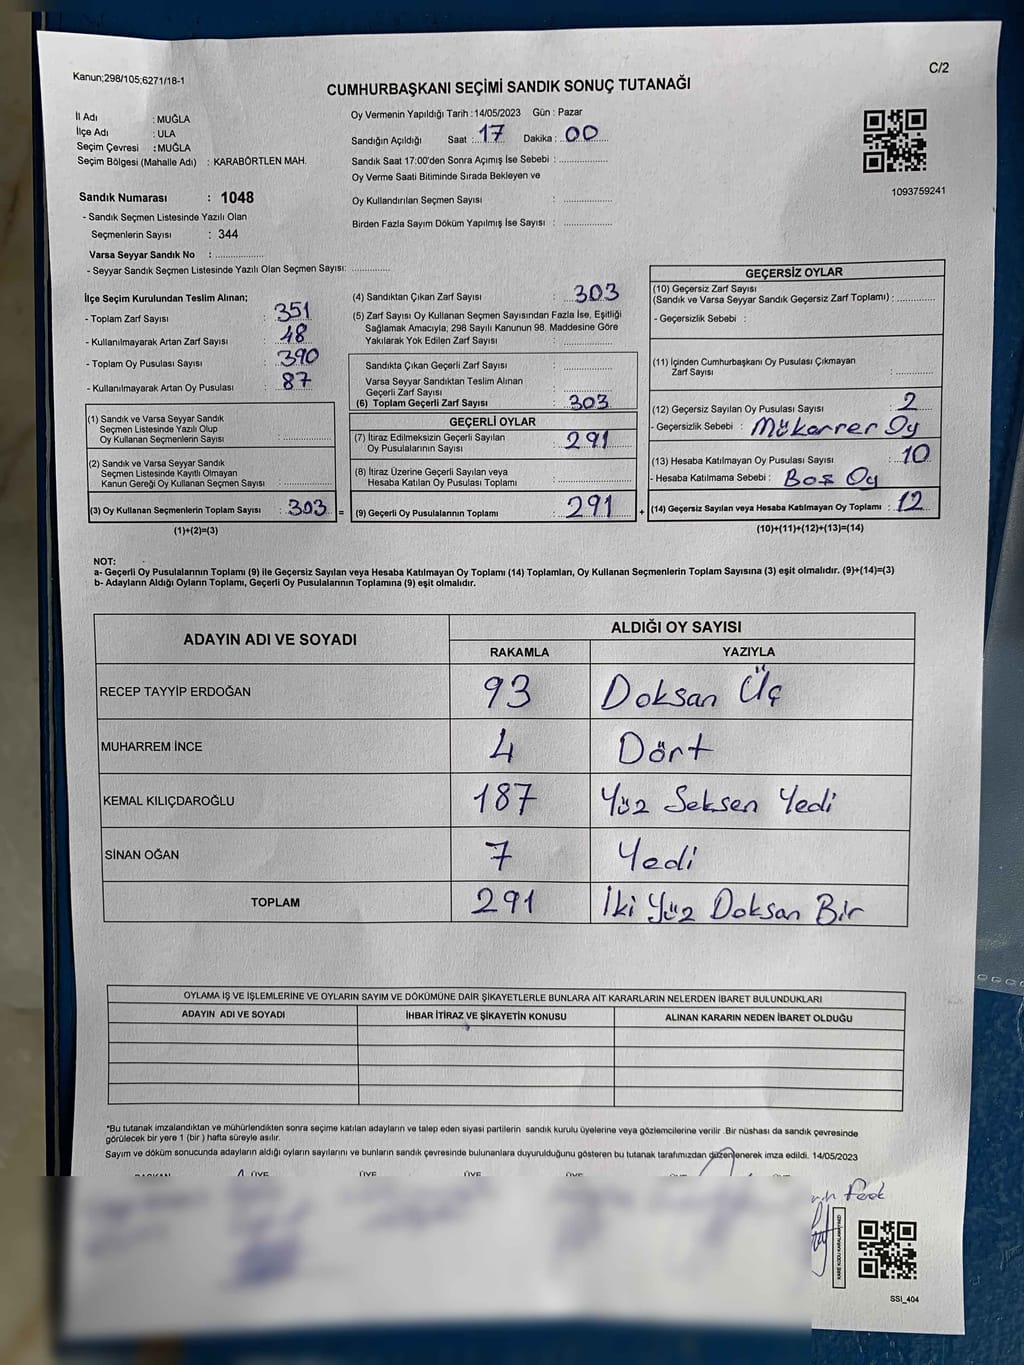 Kanun;298/105;6271/18-1
C/2
CUMHURBAŞKANI SEÇİMİ SANDIK SONUÇ TUTANAĞI
İl Adı : MUĞLA
İlçe Adı : ULA
Seçim Çevresi : MUĞLA
Seçim Bölgesi (Mahalle Adı) : KARABÖRTLEN MAH.
Sandık Numarası : 1048
- Sandık Seçmen Listesinde Yazılı Olan
Seçmenlerin Sayısı : 344
Varsa Seyyar Sandık No : ................
- Seyyar Sandık Seçmen Listesinde Yazılı Olan Seçmen Sayısı: .............
Oy Vermenin Yapıldığı Tarih : 14/05/2023 Gün : Pazar
Sandığın Açıldığı Saat : 17 Dakika : 00
Sandık Saat 17:00'den Sonra Açımış İse Sebebi : ................
Oy Verme Saati Bitiminde Sırada Bekleyen ve
Oy Kullandırılan Seçmen Sayısı : ................
Birden Fazla Sayım Döküm Yapılmış İse Sayısı : ................
1093759241
İlçe Seçim Kurulundan Teslim Alınan;
- Toplam Zarf Sayısı : 351
- Kullanılmayarak Artan Zarf Sayısı : 48
- Toplam Oy Pusulası Sayısı : 390
- Kullanılmayarak Artan Oy Pusulası : 87
(1) Sandık ve Varsa Seyyar Sandık
Seçmen Listesinde Yazılı Olup
Oy Kullanan Seçmenlerin Sayısı : ................
(2) Sandık ve Varsa Seyyar Sandık
Seçmen Listesinde Kayıtlı Olmayan
Kanun Gereği Oy Kullanan Seçmen Sayısı : ................
(3) Oy Kullanan Seçmenlerin Toplam Sayısı : 303 =
(1)+(2)=(3)
(4) Sandıktan Çıkan Zarf Sayısı : 303
(5) Zarf Sayısı Oy Kullanan Seçmen Sayısından Fazla İse, Eşitliği
Sağlamak Amacıyla; 298 Sayılı Kanunun 98. Maddesine Göre
Yakılarak Yok Edilen Zarf Sayısı : ................
Sandıkta Çıkan Geçerli Zarf Sayısı : ................
Varsa Seyyar Sandıktan Teslim Alınan
Geçerli Zarf Sayısı : ................
(6) Toplam Geçerli Zarf Sayısı : 303
GEÇERLİ OYLAR
(7) İtiraz Edilmeksizin Geçerli Sayılan
Oy Pusulalarının Sayısı : 291
(8) İtiraz Üzerine Geçerli Sayılan veya
Hesaba Katılan Oy Pusulası Toplamı : ................
(9) Geçerli Oy Pusulalarının Toplamı : 291 +
GEÇERSİZ OYLAR
(10) Geçersiz Zarf Sayısı
(Sandık ve Varsa Seyyar Sandık Geçersiz Zarf Toplamı) : ............
- Geçersizlik Sebebi :
(11) İçinden Cumhurbaşkanı Oy Pusulası Çıkmayan
Zarf Sayısı : ............
(12) Geçersiz Sayılan Oy Pusulası Sayısı : 2
- Geçersizlik Sebebi : Mükarrer Oy
(13) Hesaba Katılmayan Oy Pusulası Sayısı : 10
- Hesaba Katılmama Sebebi : Boş Oy
(14) Geçersiz Sayılan veya Hesaba Katılmayan Oy Toplamı : 12
(10)+(11)+(12)+(13)=(14)
NOT:
a- Geçerli Oy Pusulalarının Toplamı (9) ile Geçersiz Sayılan veya Hesaba Katılmayan Oy Toplamı (14) Toplamları, Oy Kullanan Seçmenlerin Toplam Sayısına (3) eşit olmalıdır. (9)+(14)=(3)
b- Adayların Aldığı Oyların Toplamı, Geçerli Oy Pusulalarının Toplamına (9) eşit olmalıdır.
ADAYIN ADI VE SOYADI ALDIĞI OY SAYISI
RAKAMLA YAZIYLA
RECEP TAYYİP ERDOĞAN 93 Doksan Üç
MUHARREM İNCE 4 Dört
KEMAL KILIÇDAROĞLU 187 Yüz Seksen Yedi
SİNAN OĞAN 7 Yedi
TOPLAM 291 İki Yüz Doksan Bir
OYLAMA İŞ VE İŞLEMLERİNE VE OYLARIN SAYIM VE DÖKÜMÜNE DAİR ŞİKAYETLERLE BUNLARA AİT KARARLARIN NELERDEN İBARET BULUNDUKLARI
ADAYIN ADI VE SOYADI İHBAR İTİRAZ VE ŞİKAYETİN KONUSU ALINAN KARARIN NEDEN İBARET OLDUĞU
*Bu tutanak imzalandıktan ve mühürlendikten sonra seçime katılan adayların ve talep eden siyasi partilerin sandık kurulu üyelerine veya gözlemcilerine verilir .Bir nüshası da sandık çevresinde
görülecek bir yere 1 (bir ) hafta süreyle asılır.
Sayım ve döküm sonucunda adayların aldığı oyların sayılarını ve bunların sandık çevresinde bulunanlara duyurulduğunu gösteren bu tutanak tarafımızdan düzenlenerek imza edildi. 14/05/2023
SSI_404